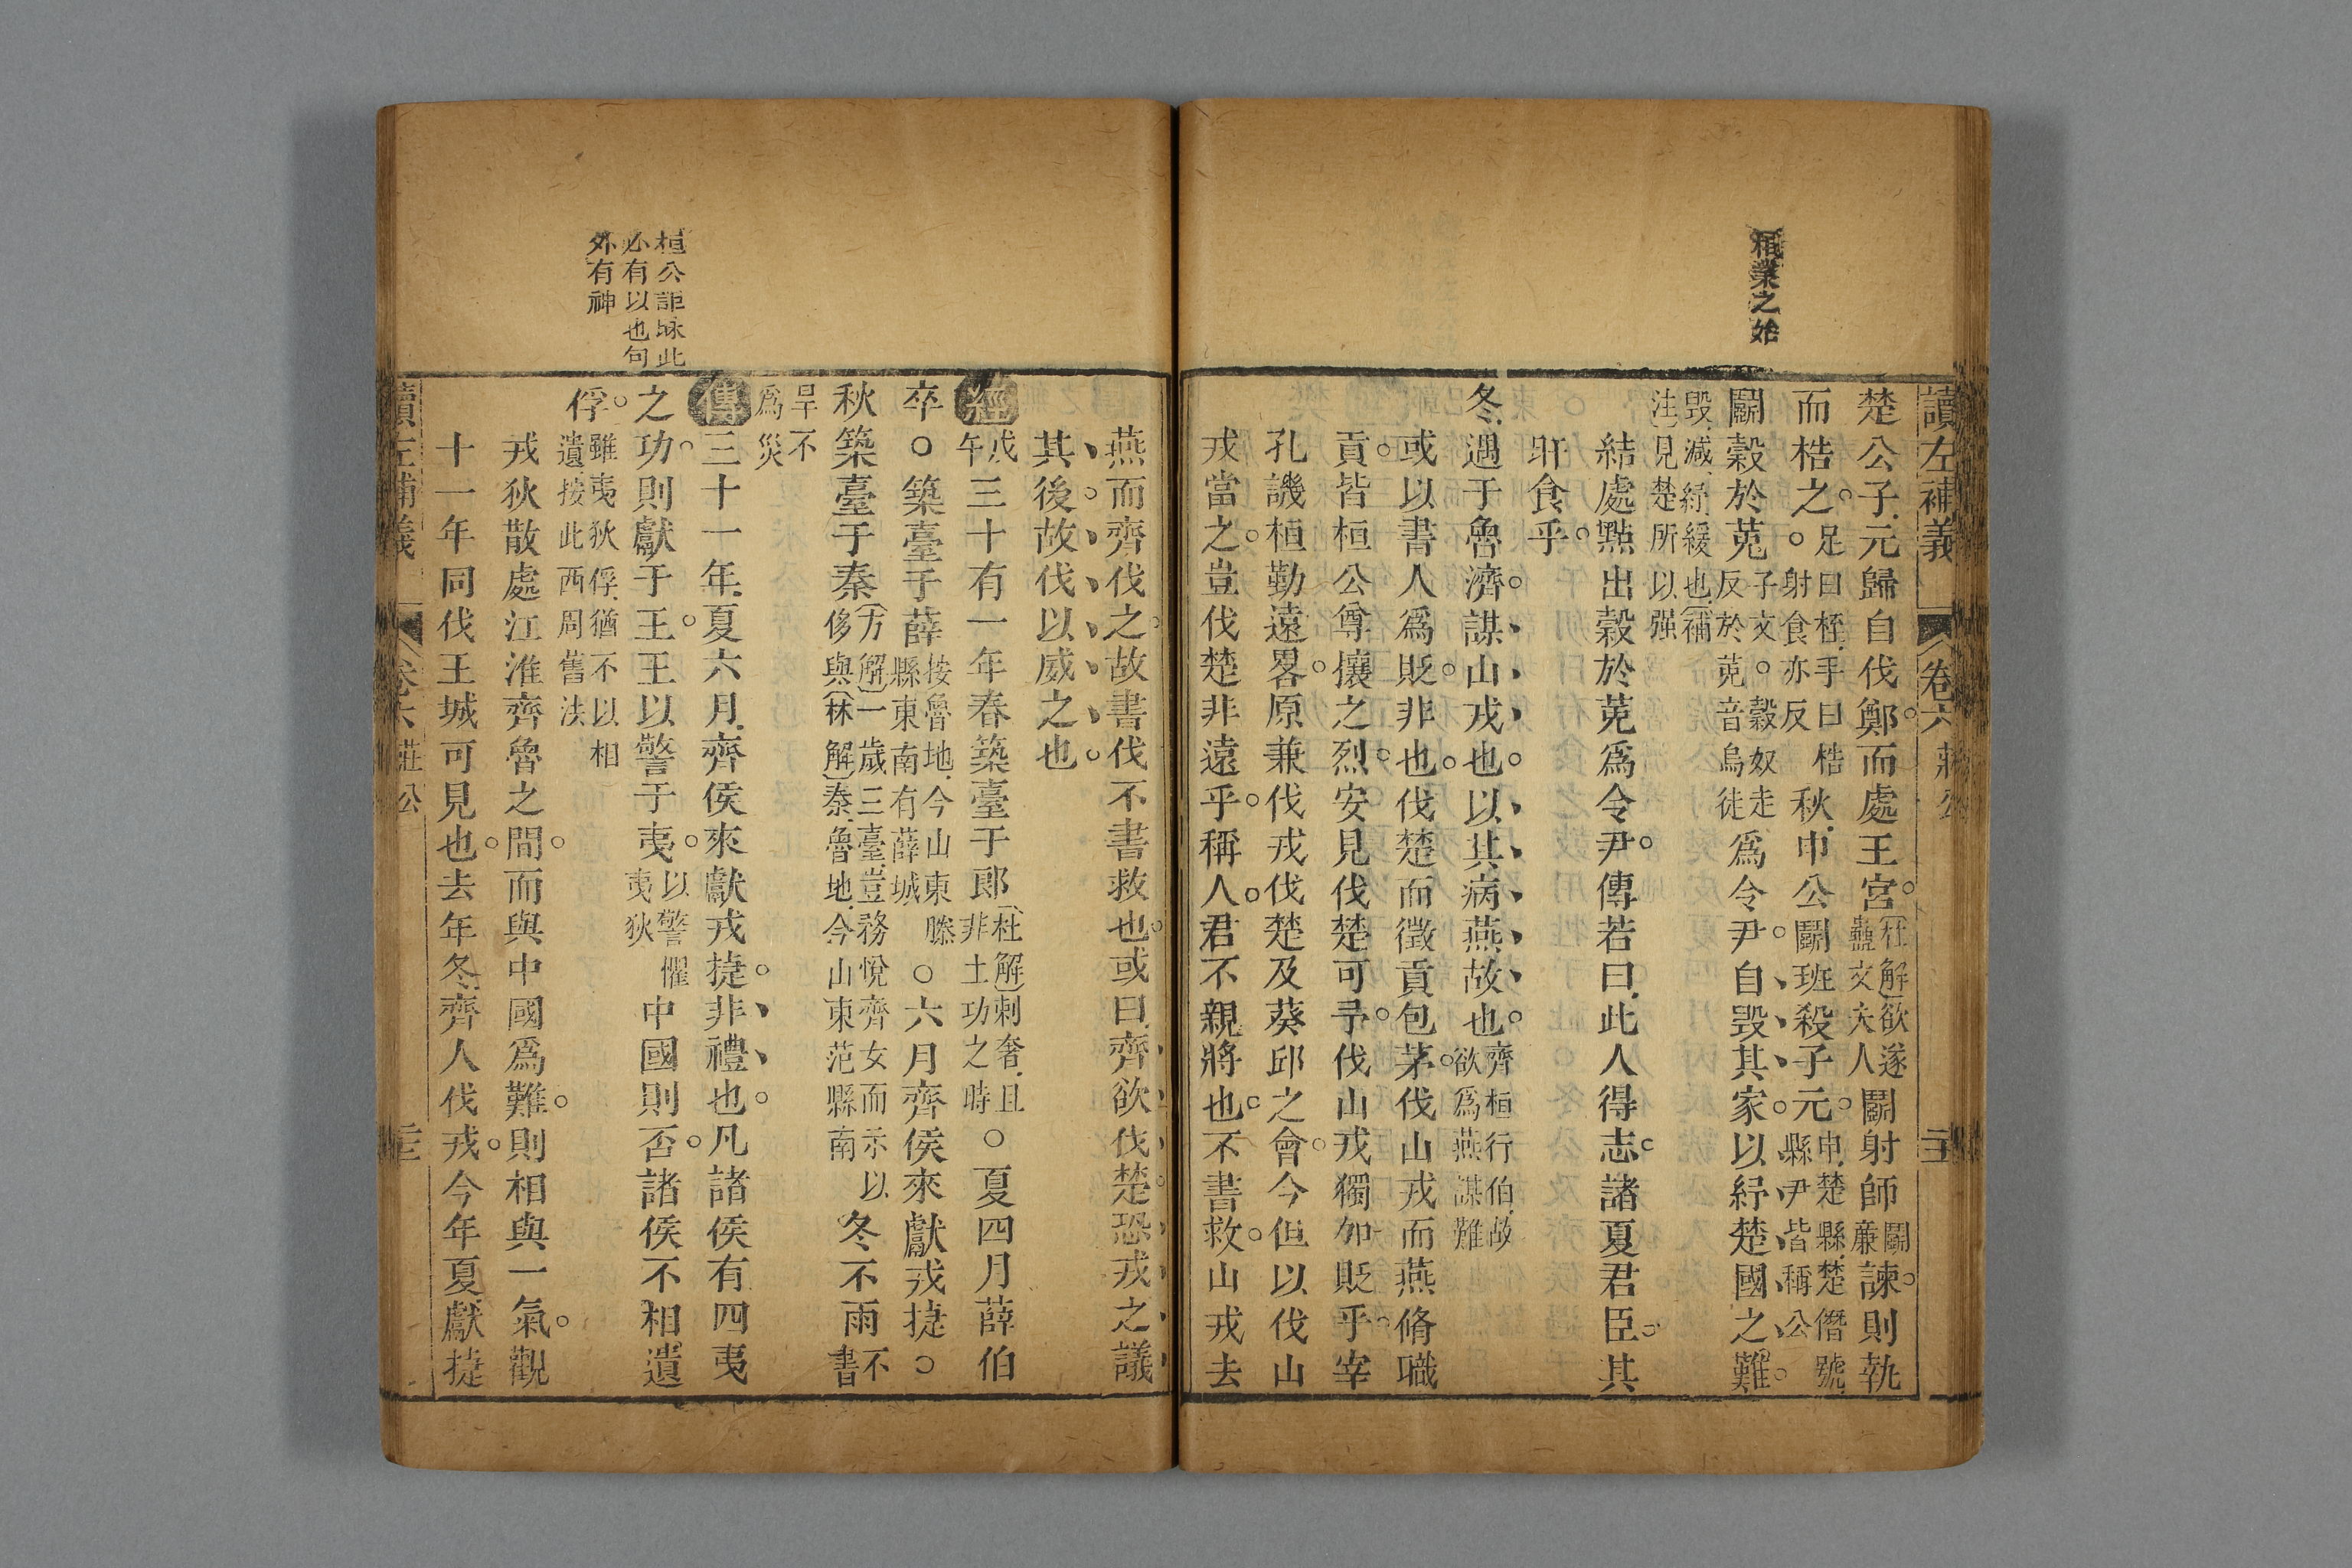 讀左補義 卷六 莊公
相業之始
楚公子元歸自伐鄭而處王宮杜解欲遂蠱文夫人鬭射師鬭廉諫則執
而梏之足曰桎手曰梏射食亦反秋申公鬭班殺子元申楚縣楚僭號縣尹皆稱公
鬭穀於菟子文穀奴走反於菟音烏徒爲令尹自毀其家以紓楚國之難
毀減紓緩也補注見楚所以强
結處點出穀於菟爲令尹傳若曰此人得志諸夏君臣其
旰食乎
冬遇于魯濟謀山戎也以其病燕故也齊桓行伯故欲爲燕謀難
或以書人爲貶非也伐楚而徵貢包茅伐山戎而燕脩職
貢皆桓公尊攘之烈安見伐楚可予伐山戎獨加貶乎宰
孔譏桓勤遠畧原兼伐戎伐楚及葵邱之會今但以伐山
戎當之豈伐楚非遠乎稱人君不親將也不書救山戎去
燕而齊伐之故書伐不書救也或曰齊欲伐楚恐戎之議
其後故伐以威之也
經戊午三十有一年春築臺于郎杜解刺奢且非土功之時○夏四月薛伯
卒○築臺于薛按魯地今山東滕縣東南有薛城○六月齊侯來獻戎捷○
秋築臺于秦方解一歲三臺豈務悅齊女而示以侈與林解秦魯地今山東范縣南冬不雨不書
旱不爲災
傳三十一年夏六月齊侯來獻戎捷非禮也凡諸侯有四夷
之功則獻于王王以警于夷以警懼夷狄中國則否諸侯不相遺
俘雖夷狄俘猶不以相遺按此西周舊法
桓公詎昧此
必有以也句
外有神
戎狄散處江淮齊魯之間而與中國爲難則相與一氣觀
十一年同伐王城可見也去年冬齊人伐戎今年夏獻捷
讀左補義 卷六 莊公